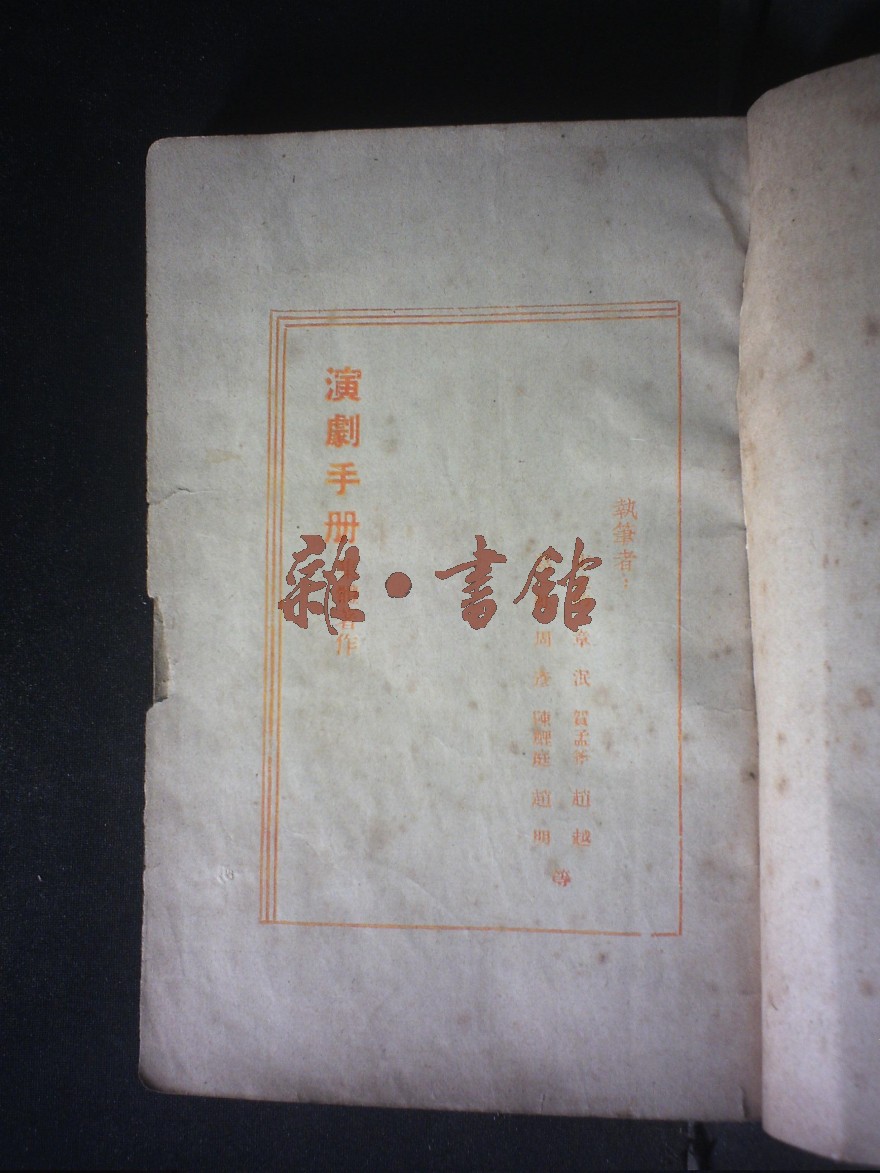 執筆者：
章泯 賀孟斧 趙越
周彥 陳鯉庭 趙明
等
演劇手册
著作
雜·書館